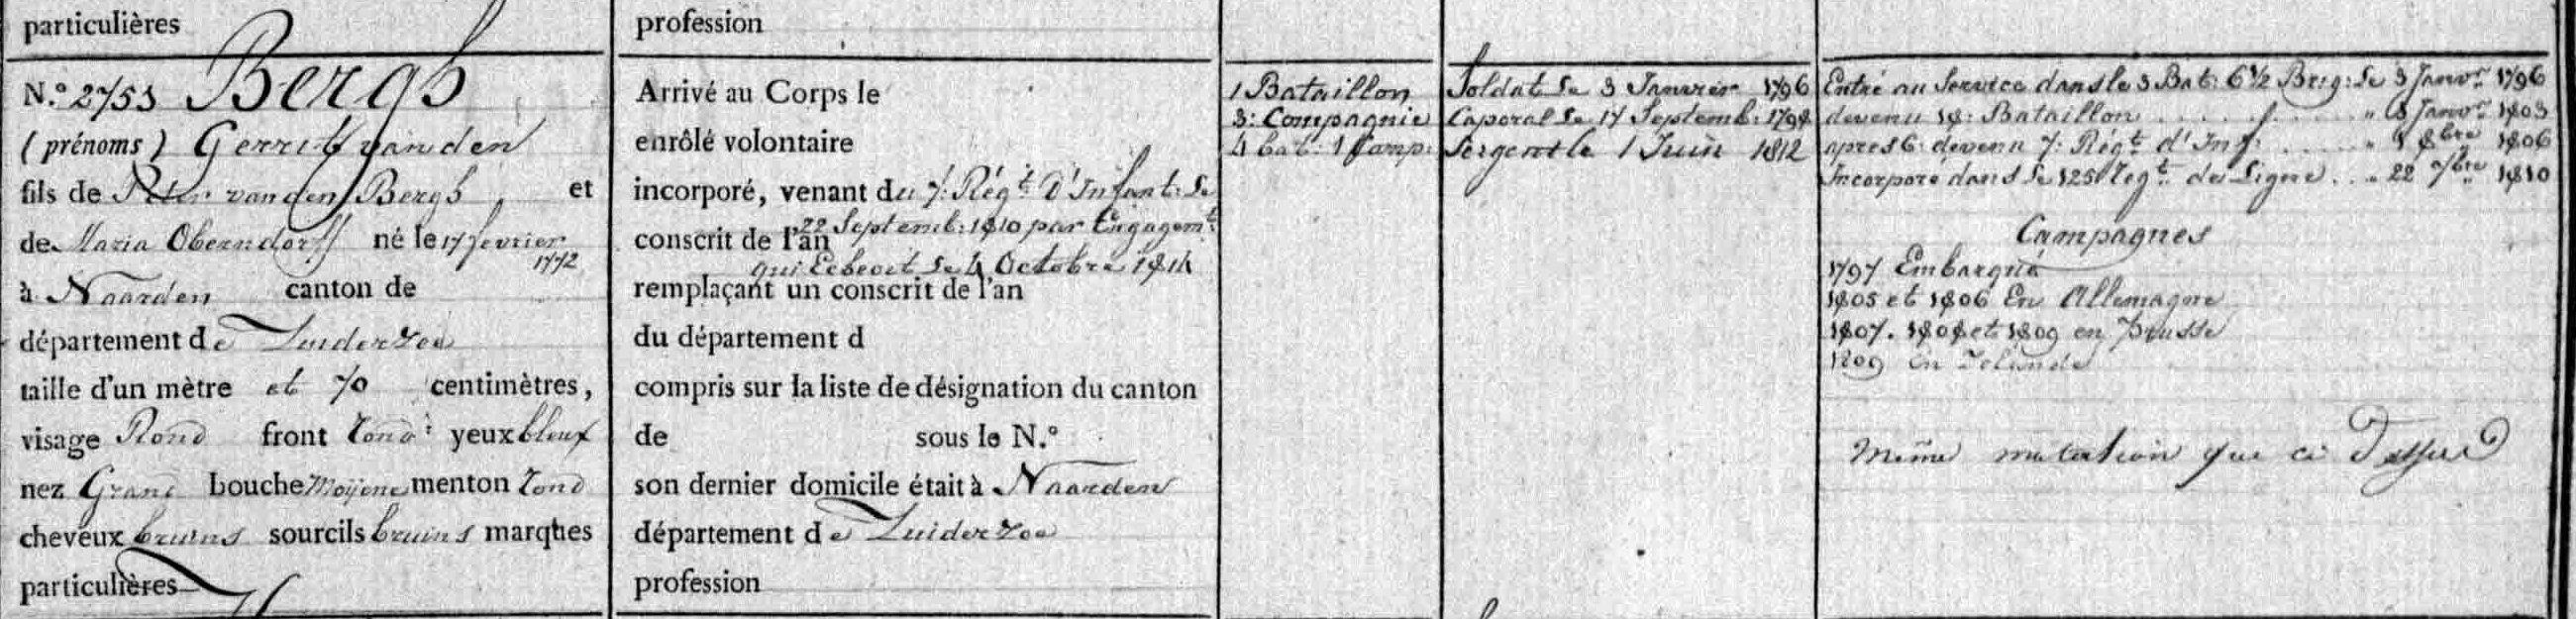 particulières
N.º 2753 Bergh
(prénoms) Gerrit van den
fils de Peter van den Bergh et
de Maria Oberndorff né le 17 fevrier
1772
à Naarden canton de
département de Zuiderzee
taille d'un mètre et 70 centimètres,
visage Rond front rond yeux bleux
nez Grand bouche Moijene menton rond
cheveux bruins sourcils bruins marques
particulières
profession
Arrivé au Corps le
enrôlé volontaire
incorporé, venant du 7: Régt: D'Infant: le
22 Septemb: 1810 par Engagemt
conscrit de l'an
qui Echeoit le 4 Octobre 1814
remplaçant un conscrit de l'an
du département d
compris sur la liste de désignation du canton
de sous le N.º
son dernier domicile était à Naarden
département de Zuiderzee
profession
1 Bataillon
3: Compagnie
4 bat: 1 Comp:
Soldat le 3 Janvier 1796
Caporal le 17 Septemb: 1798
Sergent le 1 Juin 1812
Entré au Service dans le 3 Bat: 6 1/2 Brig: le 3 Janvr 1796
devenu 18: Bataillon . . . . " 8 Janvr 1803
apres 6: devenu 7: Régt: d'Inf: . . . . " 1 8bre 1806
Incorporé dans le 125 Regt: de Ligne . . " 22 7bre 1810
Campagnes
1797 Embarqué
1805 et 1806 En Allemagne
1807. 1808 et 1809 en prusse
1809 en Zelande
Même mutation que ci Dessus